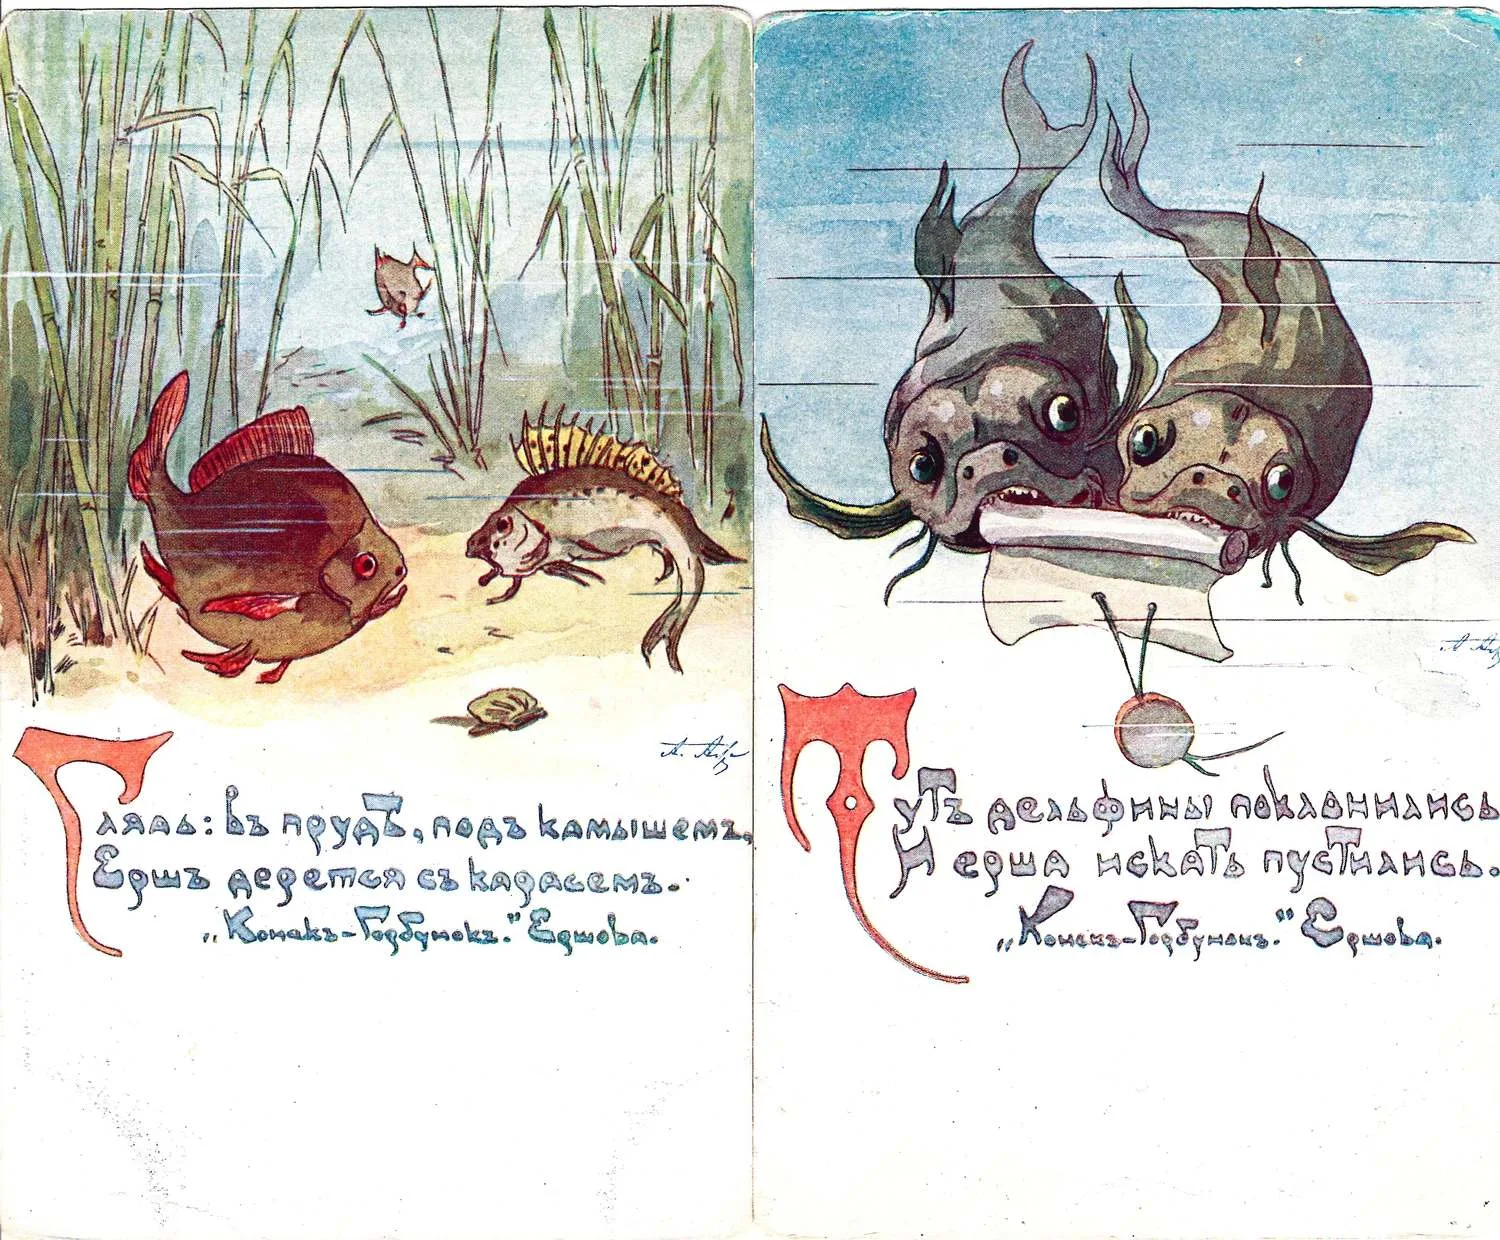 А. Аф
Глядь: въ прудѣ, подъ камышемъ,
Ершъ дерется съ карасемъ.
„Конекъ-Горбунокъ.” Ершова.
Тутъ дельфины поклонились
И ерша искать пустились.
„Конекъ-Горбунокъ.” Ершова.